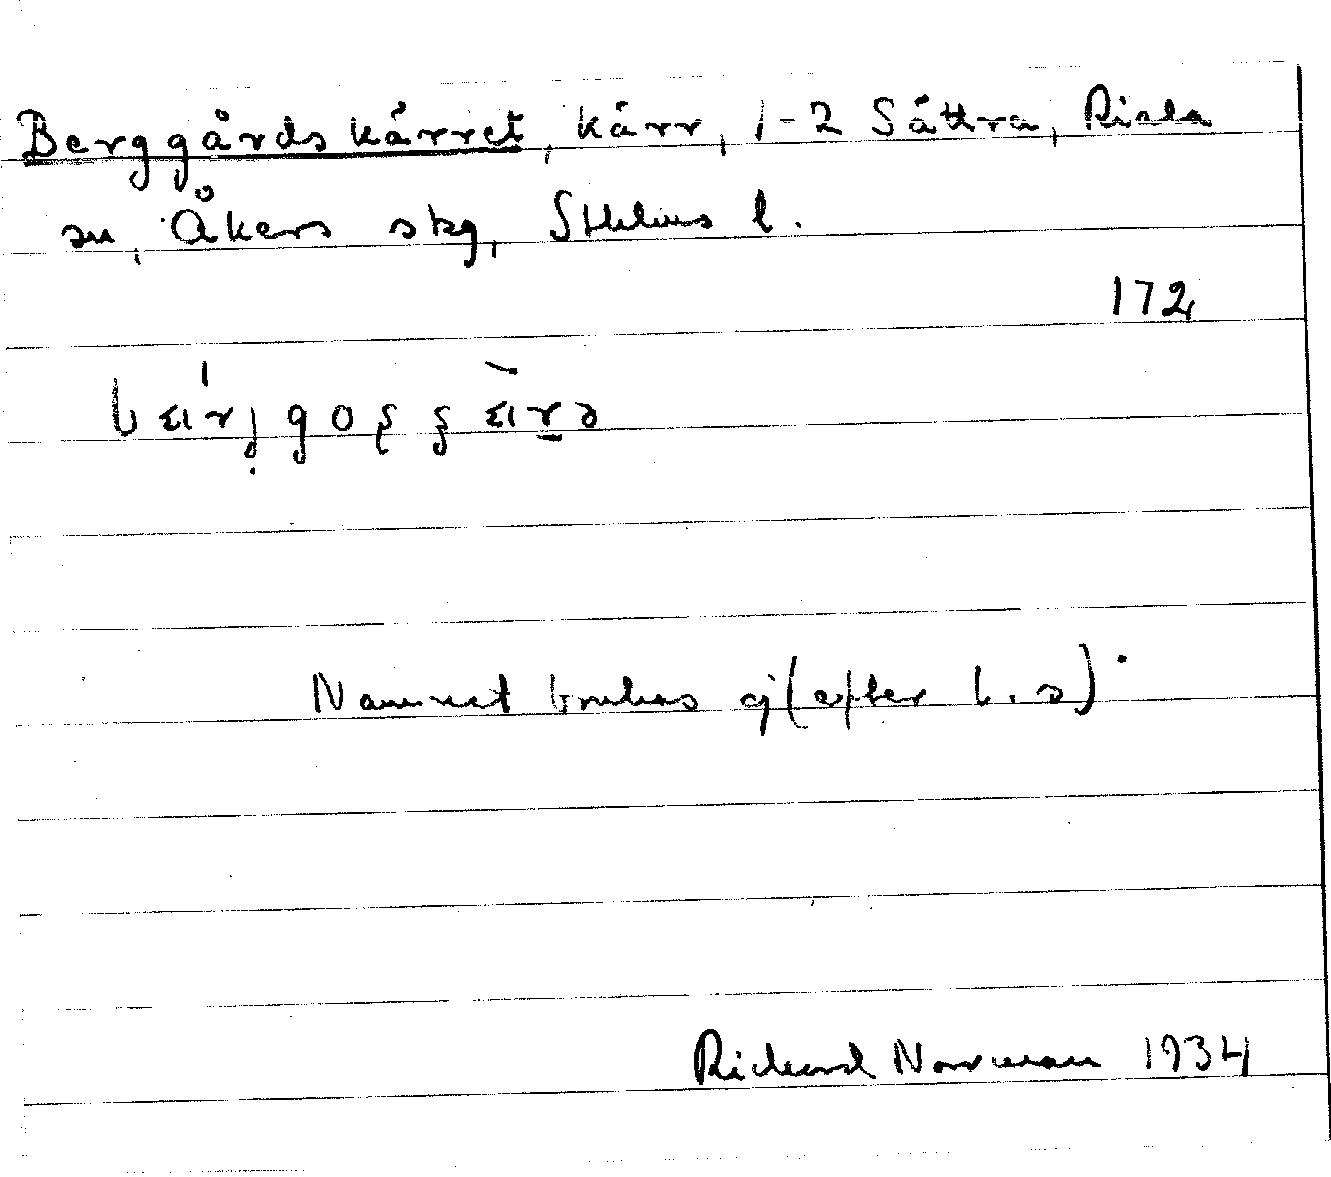 Berggårdskärret, kärr, 1-2 Sättra, Riala
sn, Åkers skg, Sthlms l.
172
Namnet brukas ej (efter b. s).
Richard Norman 1934